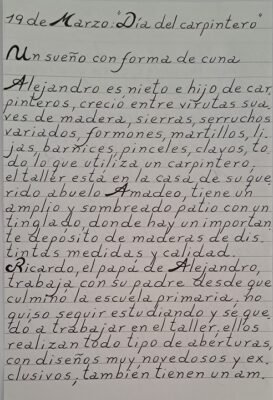 19 de Marzo: "Día del carpintero"
Un sueño con forma de cuna
Alejandro es nieto e hijo de car
pinteros, creció entre virutas sua
ves de madera, sierras, serruchos
variados, formones, martillos, li-
jas, barnices, pinceles, clavos, to
do lo que utiliza un carpintero,
el taller está en la casa de su que
rido abuelo Amadeo, tiene un
amplio y sombreado patio con un
tinglado, donde hay un importan
te depósito de maderas de dis_
tintas medidas y calidad.
Ricardo, el papá de Alejandro,
trabaja con su padre desde que
culminó la escuela primaria, no
quiso seguir estudiando y se que
dó a trabajar en el taller, ellos
realizan todo tipo de aberturas,
con diseños muy novedosos y ex_
clusivos, también tienen un am_